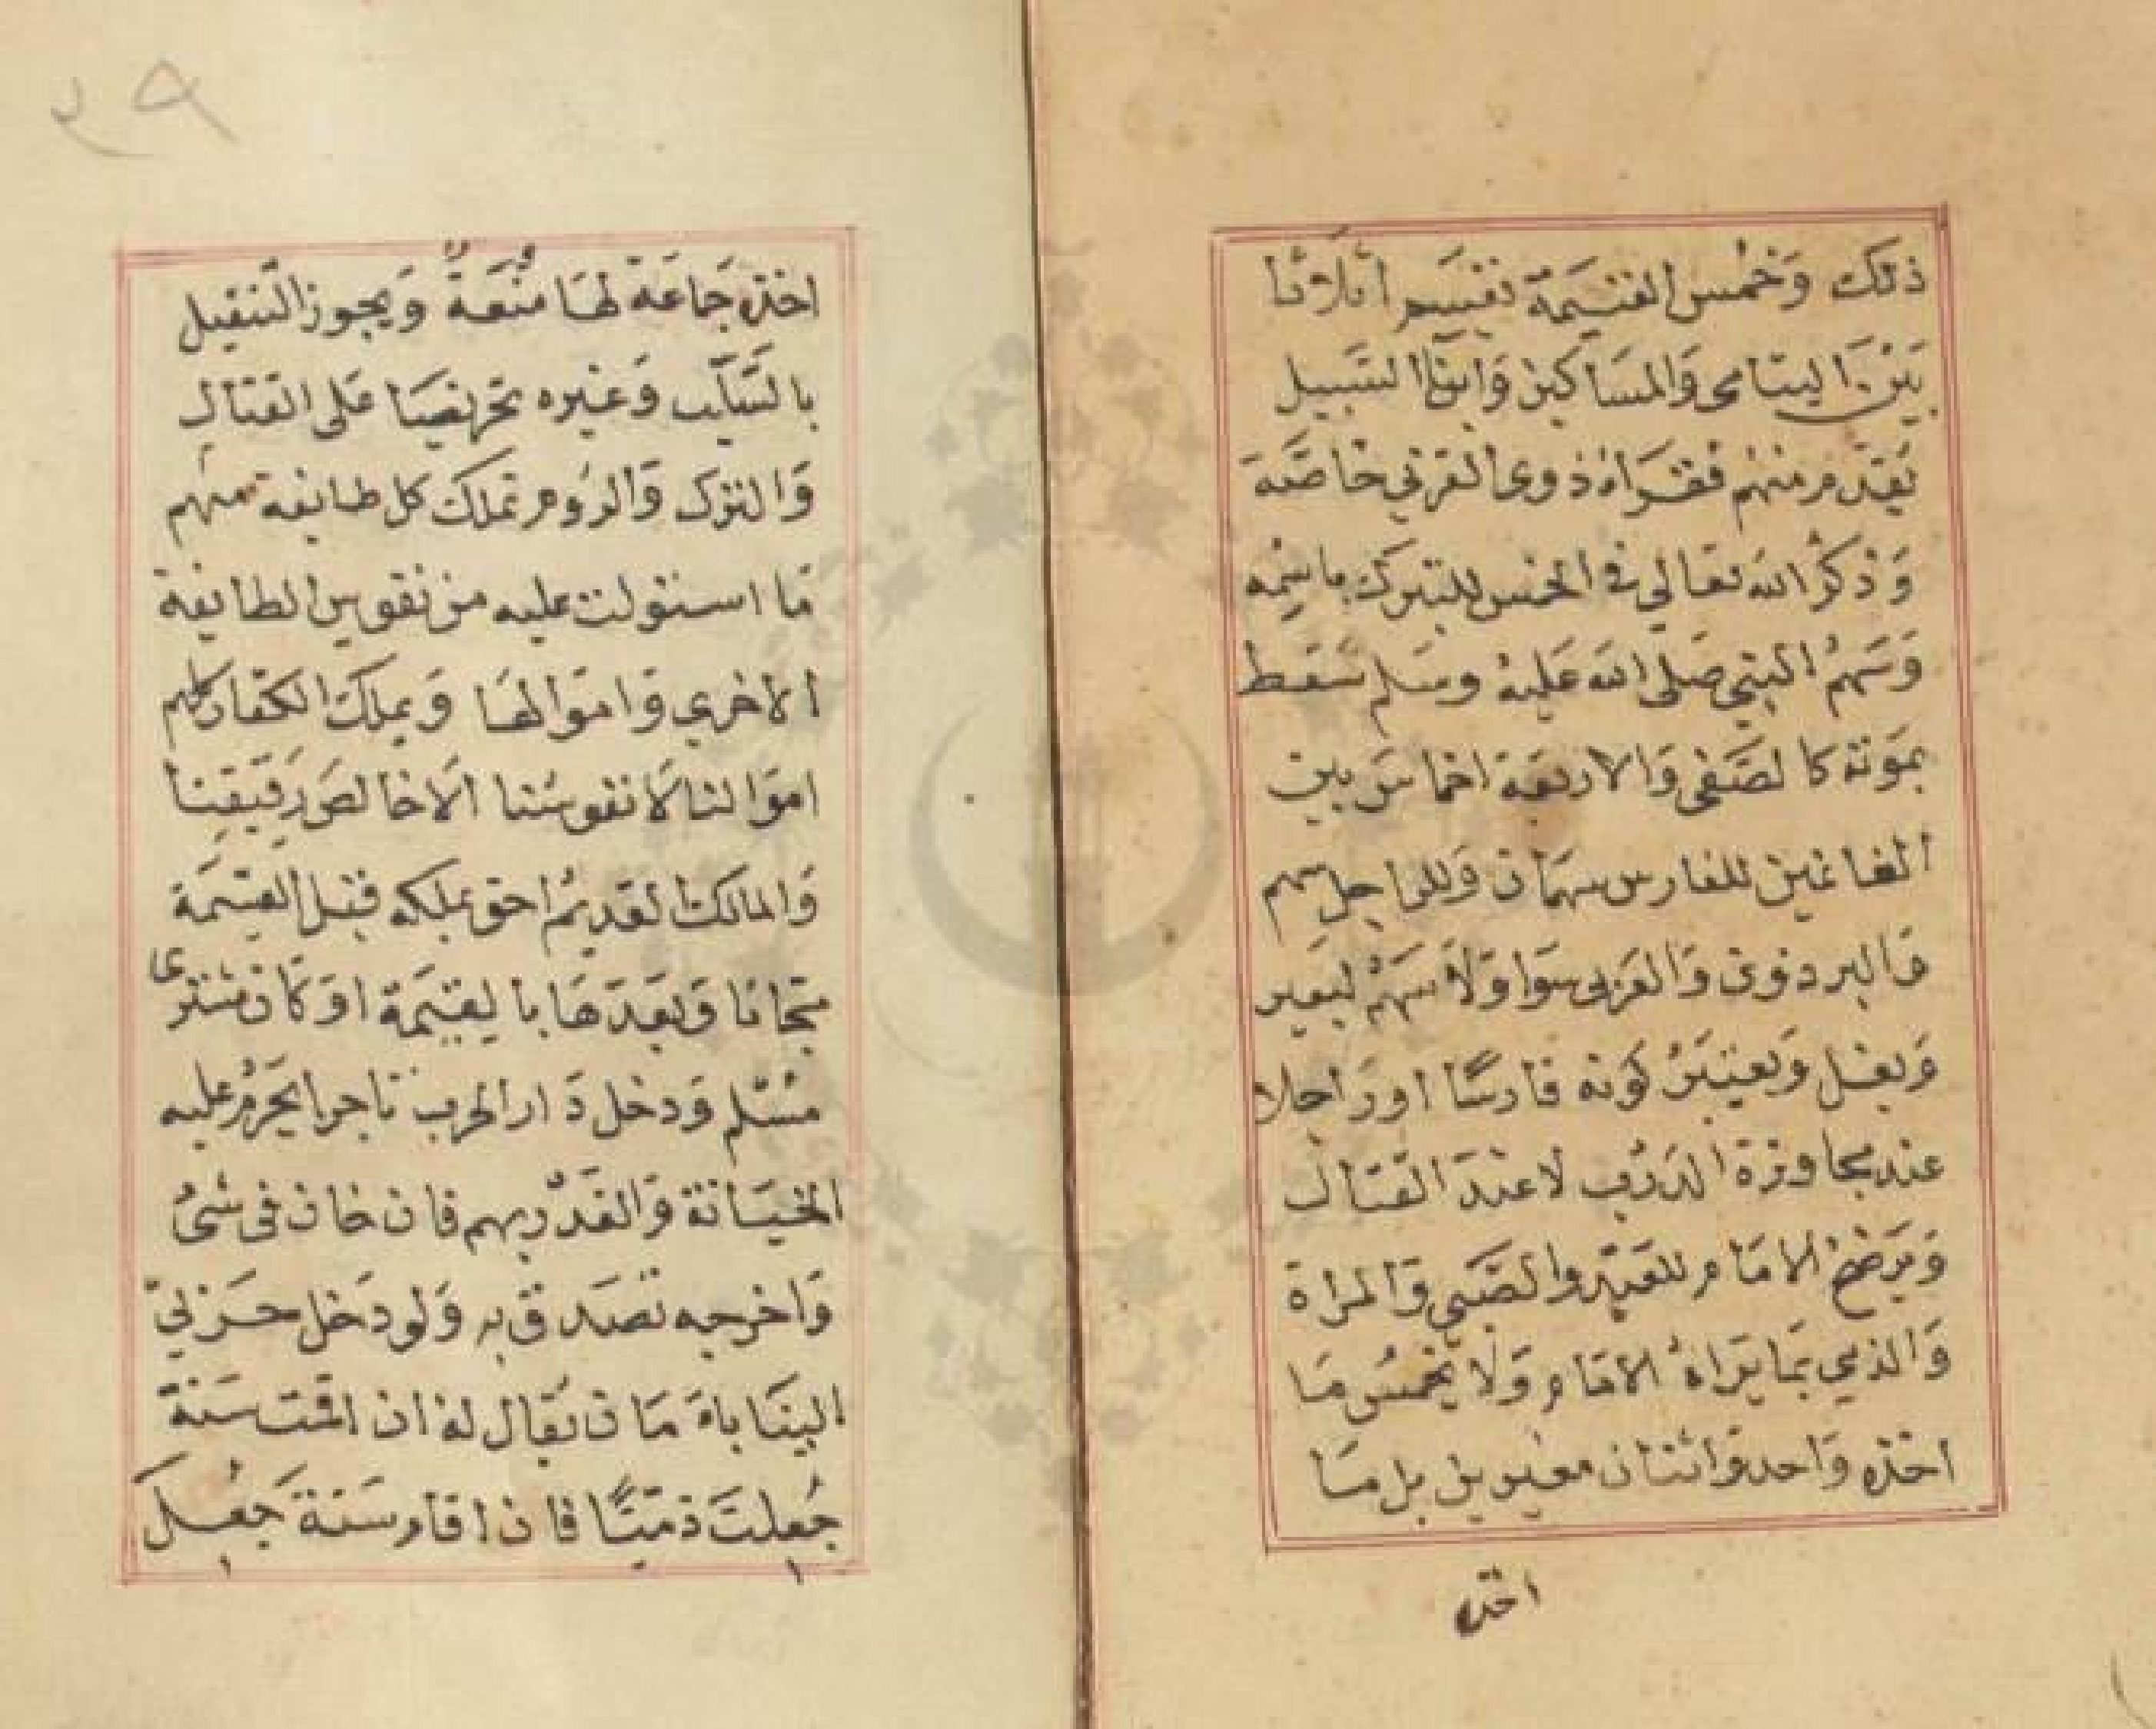 ذلك وَخُمس الغنيمَة تقسَم أثلَاثا
بَيْن اليتامى وَالمسَاكين وَابن السَبيل
يُقدّم منهم فقرَاءُ ذوى القربي خاصَّة
وَذكرُ الله تعَالي في الخمس للتبرك باسْمه
وَسَهمُ النبي صَلى الله عَليهُ وسَلم سَقط
بمَوته كالصَّفى وَالاربعَة اخماسَ بين
الغانمين للفارس سهمَان وَللراجل سهم
وَالبرذون وَالعَربى سَوا وَلَا سَهْمُ لبَعير
وَبغل وَيعتبَرُ كونه فارسًا اورَاجلا
عند مجاوزة الدَرْب لا عندَ القتال
وَيَرضخُ الامَام للعَبْد والصَّبي وَالمراة
وَالذمي بمَا يرَاهُ الامَام وَلا يخمسُ مَا
اخذه وَاحد وَاثنان مغيرين بل مَا
اخذه
٢٩
اخذه جَماعَة لهَا مَنْعَةٌ وَيجوز التنفيل
بالسَّلَب وَغيره تحريضًا عَلى القتال
وَالترك وَالرُوم تملك كل طايفة منهم
مَا استولت عليه من نفوس الطايفة
الاخري وَاموَالهَا وَيملك الكفار كلهم
اموَالنا لَا نفوسُنا الَاخالصَ رَقيقِنا
وَالمالك القديمُ احق بملكه قبل القِسمَة
مَجانا وَبعَدهَا بالقيمَة اوَكان مشترى
مسْلم وَدخل دَار الحرب تاجرا يحَرمُ عليه
الخيَانة وَالغدْر بهم فان خان في شئ
وَاخرجه تصَدق به وَلو دخل حَربيّ
الينَا بامَان يُقال لهُ ان اقمت سَنةً
جُعلتَ ذمّيًا فان اقام سَنة جَعُلَ